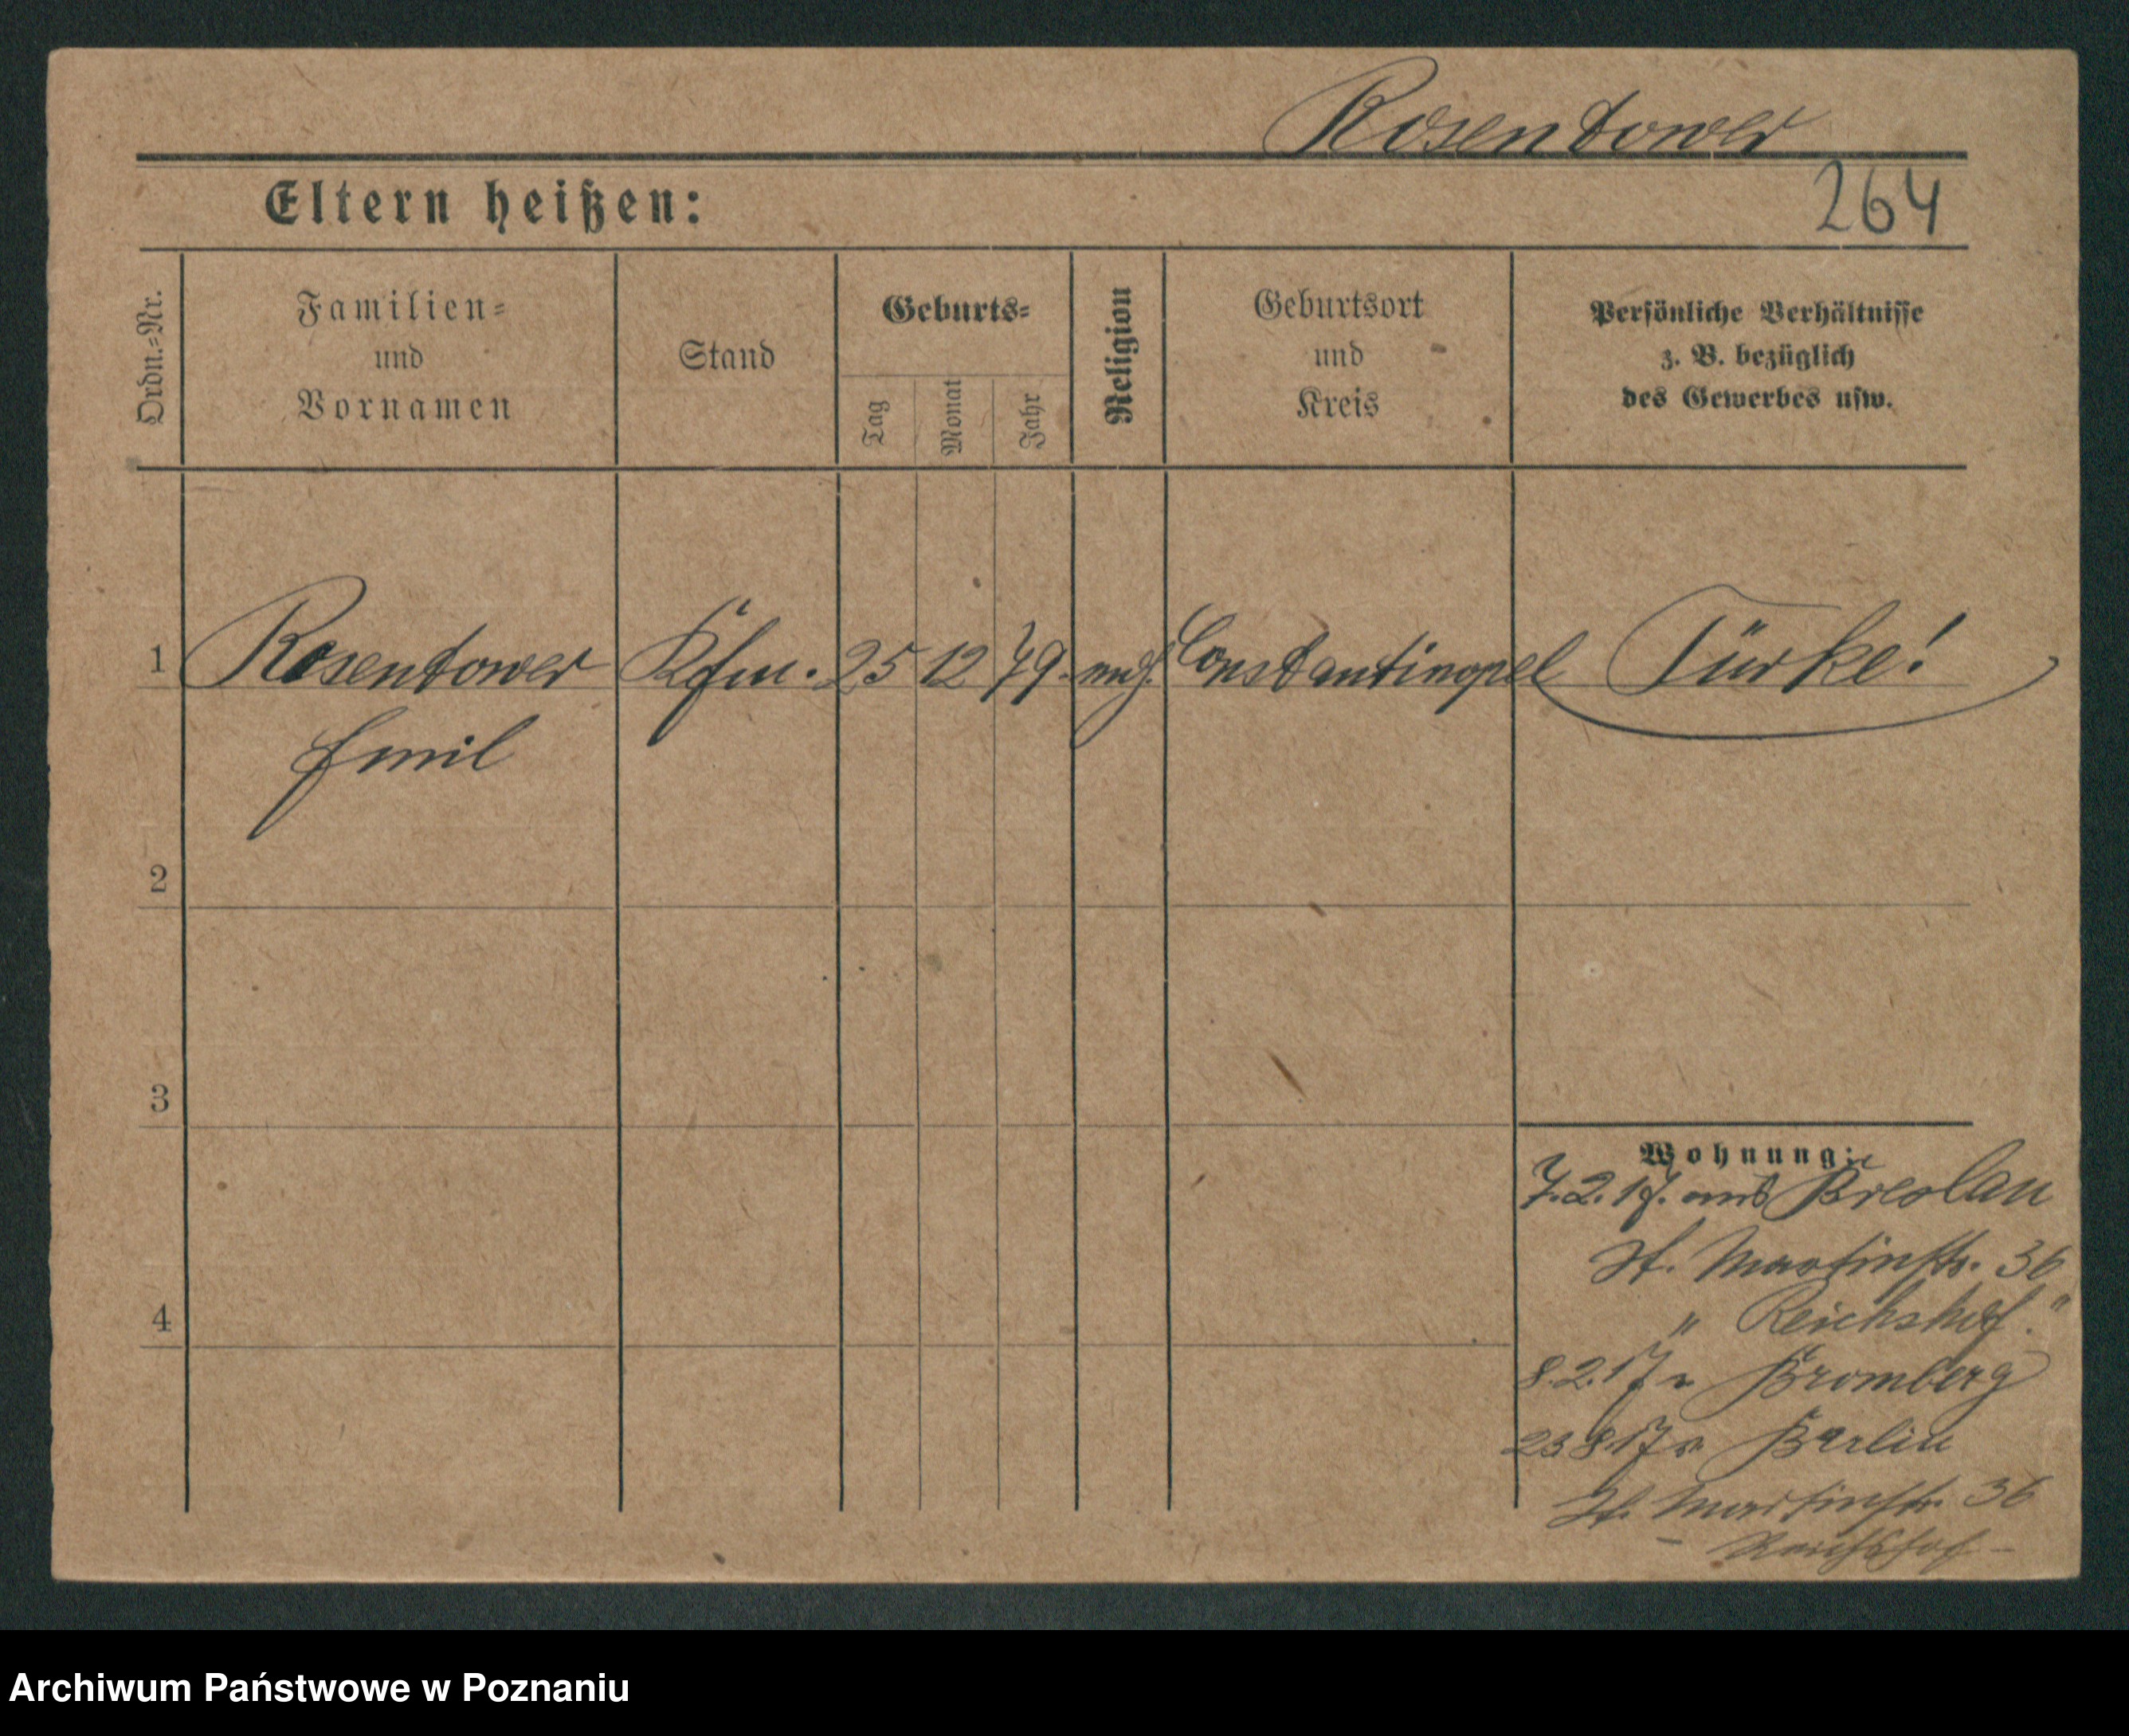 Rosentower
264
Eltern heißen:
Ordn.-Nr.
Familien-
und
Vornamen
Stand
Geburts-
Tag
Monat
Jahr
Religion
Geburtsort
und
Kreis
Persönliche Verhältnisse
z. B. bezüglich
des Gewerbes usw.
1 Rosentower Kfm. 25 12 79. Constantinopel Türke!
Emil
2
3
4
Wohnung:
7.2.17. aus Breslau
St. Martinstr. 36
" Reichshof."
8.2.17 n Bromberg
23 8 17 v Berlin
St. Martinstr. 36
- Reichshof -
Archiwum Państwowe w Poznaniu